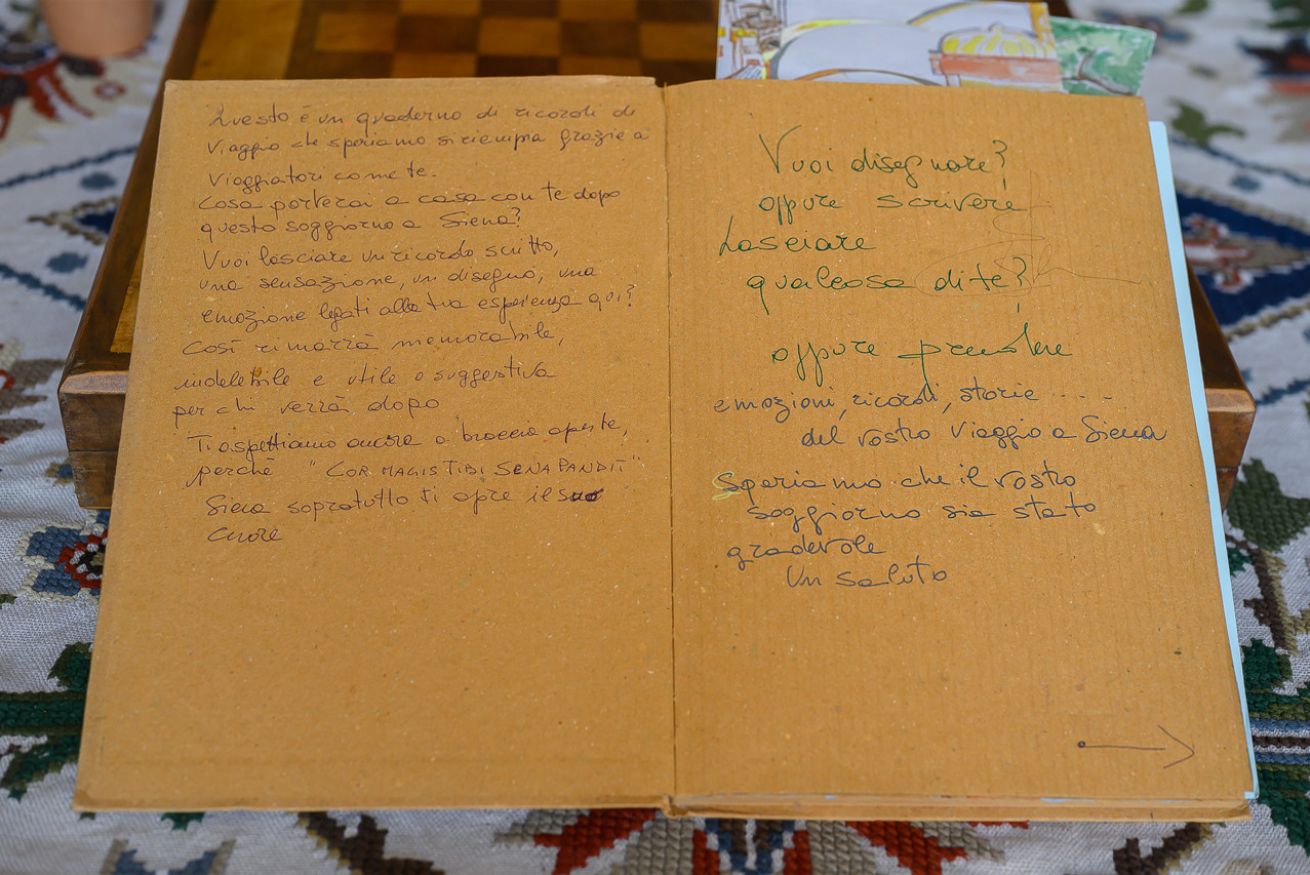 Questo è un quaderno di ricordi di
viaggio che speriamo si riempia grazie a
viaggiatori come te.
Cosa porterai a casa con te dopo
questo soggiorno a Siena?
Vuoi lasciare un ricordo scritto,
una sensazione, un disegno, una
emozione legati alla tua esperienza qui?
Così rimarrà memorabile,
indelebile e utile o suggestiva
per chi verrà dopo
Ti aspettiamo ancora a braccia aperte,
perchè "COR MAGIS TIBI SENA PANDIT"
Siena sopratutto ti apre il suo
cuore
Vuoi disegnare?
oppure scrivere
Lasciare
qualcosa di te?
oppure prendere
emozioni, ricordi, storie ....
del vostro viaggio a Siena
Speriamo che il vostro
soggiorno sia stato
gradevole
Un saluto